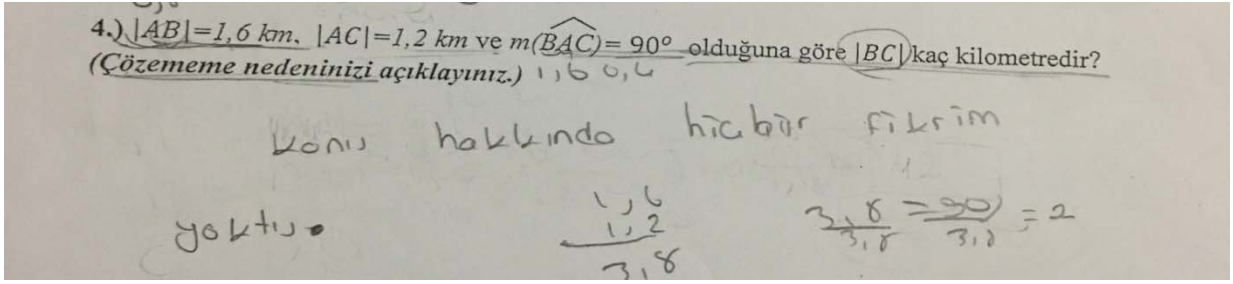 4.) |AB|=1,6 km, |AC|=1,2 km ve m(BAC)= 90° olduğuna göre |BC| kaç kilometredir?
(Çözememe nedeninizi açıklayınız.) 1,6 0,4
konu hakkında hiçbir fikrim
yoktu.
1,6
1,2
3,8
3,8 = 90 = 2
3,8